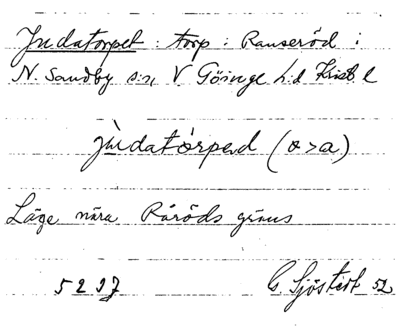 Judatorpet : torp : Ranseröd i
N. Sandby s:n, V. Göinge h:d Krist. l
jùdatórpəd (o>a)
Läge nära Röröds gräns
5237 G. Sjöstedt 52